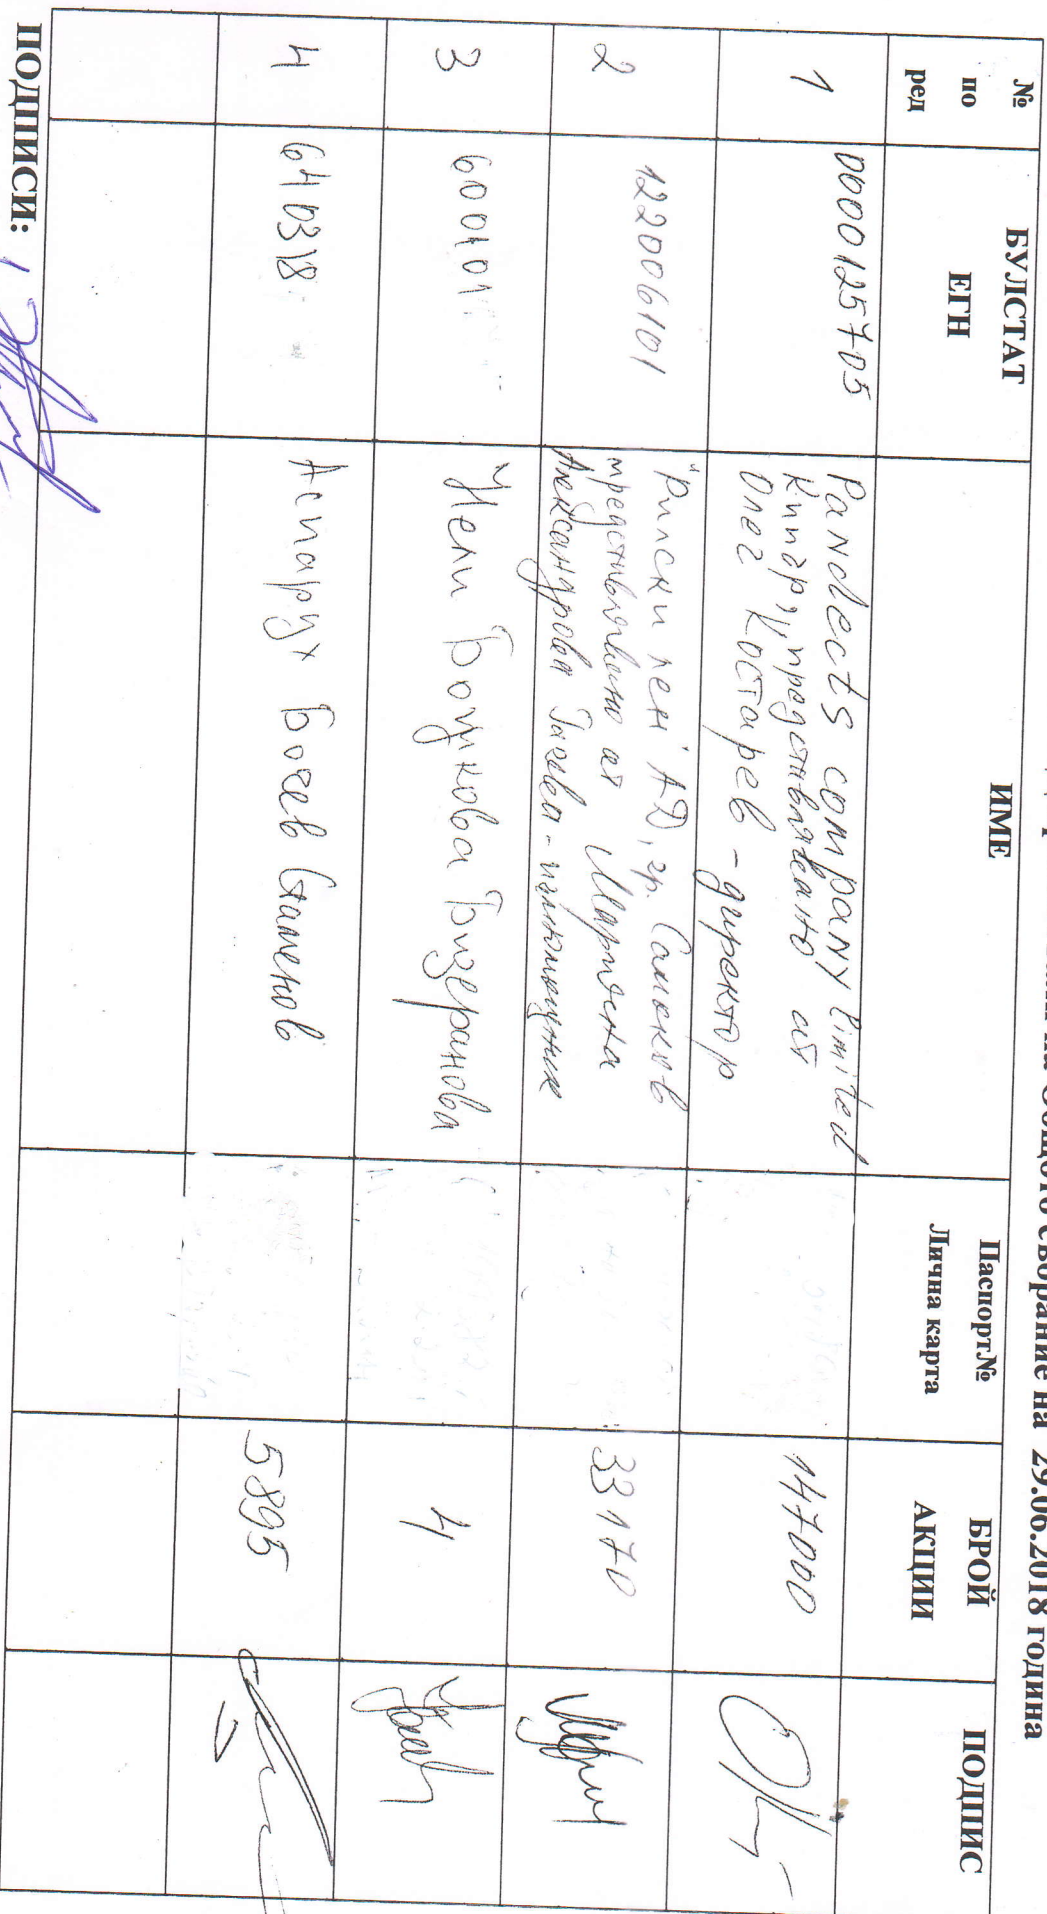 Общото събрание на 29.06.2018 година
№ по ред
БУЛСТАТ ЕГН
ИМЕ
Паспорт№ Лична карта
БРОЙ АКЦИИ
ПОДПИС
1
0000125705
Pandects company limited
Кипър, представлявано от
Олег Костарев - директор
147000
2
122006101
"Рилски лен" АД, гр. Самоков
представлявано от
Александрова - пълномощник
33170
3
600101
Нели Божкова Бизеранова
4
4
640318
Аспарух Бочев Стаменов
5895
ПОДПИСИ: